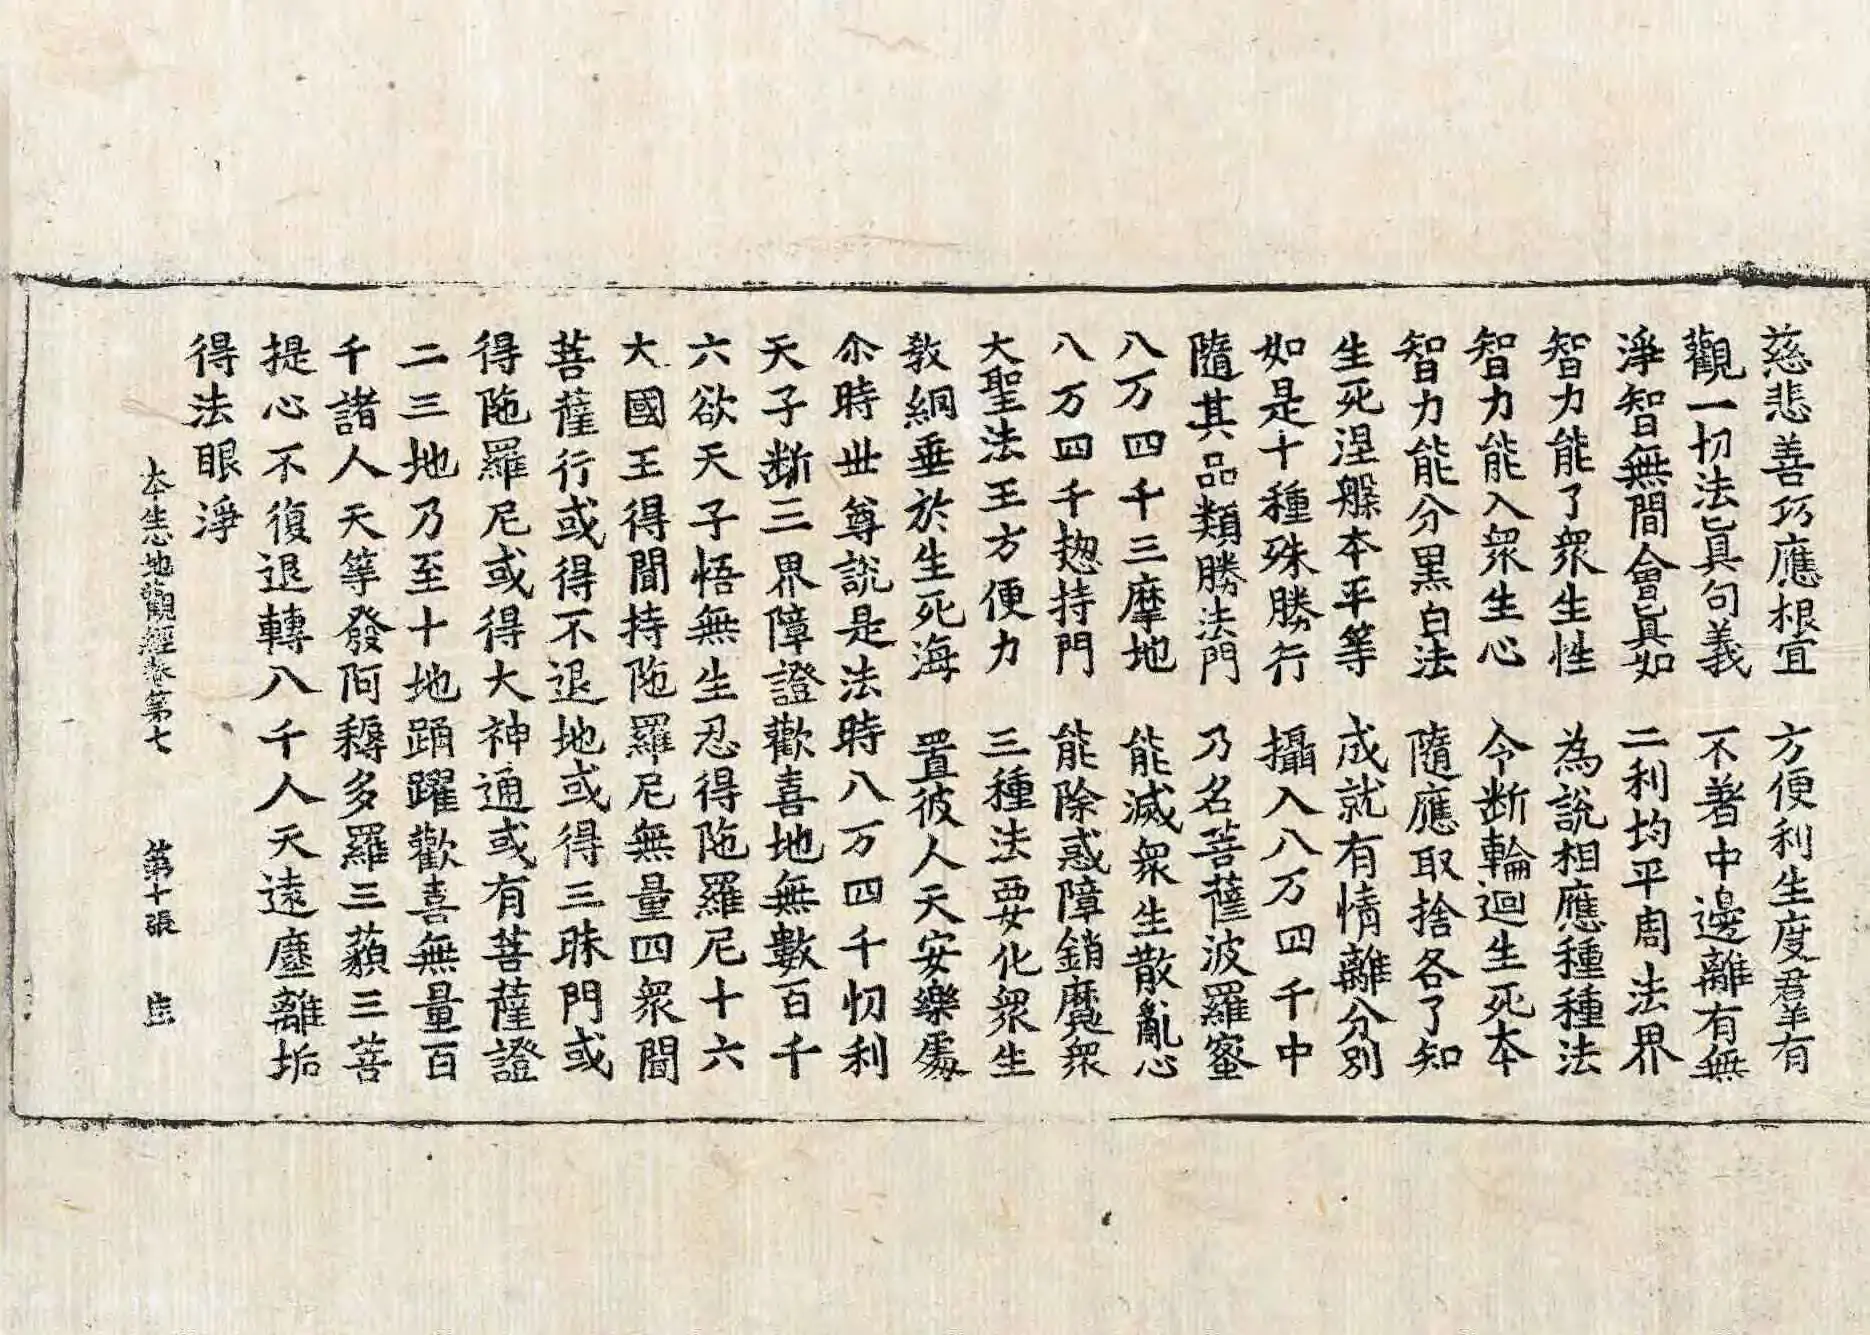 慈悲善巧應根宜 方便利生度群有
觀一切法旨真句義 不著中邊離有無
淨智無間會真如 二利均平周法界
智力能了衆生性 為説相應種種法
智力能入衆生心 令断輪迴生死本
智力能分黒白法 隨應取捨各了知
生死涅般本平等 成就有情離分別
如是十種殊勝行 攝入八万四千中
隨其品類勝法門 乃名菩薩波羅蜜
八万四千三摩地 能滅衆生散亂心
八万四千揔持門 能除惑障銷魔衆
大聖法王方便力 三種法要化衆生
教網垂於生死海 置彼人天安樂處
尒時世尊説是法時八万四千忉利
天子断三界障證歡喜地無數百千
六欲天子悟無生忍得陁羅尼十六
大國王得聞持陁羅尼無量四衆聞
菩薩行或得不退地或得三昧門或
得陁羅尼或得大神通或有菩薩證
二三地乃至十地踊躍歡喜無量百
千諸人天等發阿耨多羅三藐三菩
提心不復退轉八千人天遠塵離垢
得法眼淨
本生心地觀經卷第七 第十張